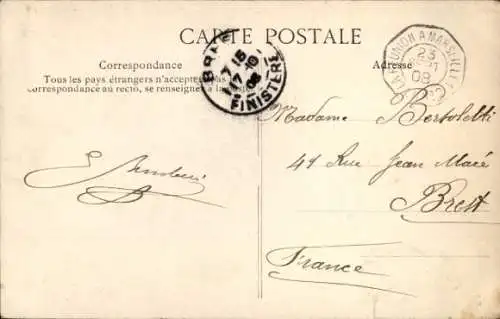 CARTE POSTALE
Correspondance
Tous les pays étrangers n'acceptent pas
correspondance au recto, se renseigner à la
Adresse
BREST
15
17 10
08
FINISTERE
LA REUNION A MARSEILLE
23
SEPT
08
Madame Bertoletti
41 Rue Jean Macé
Brest
France